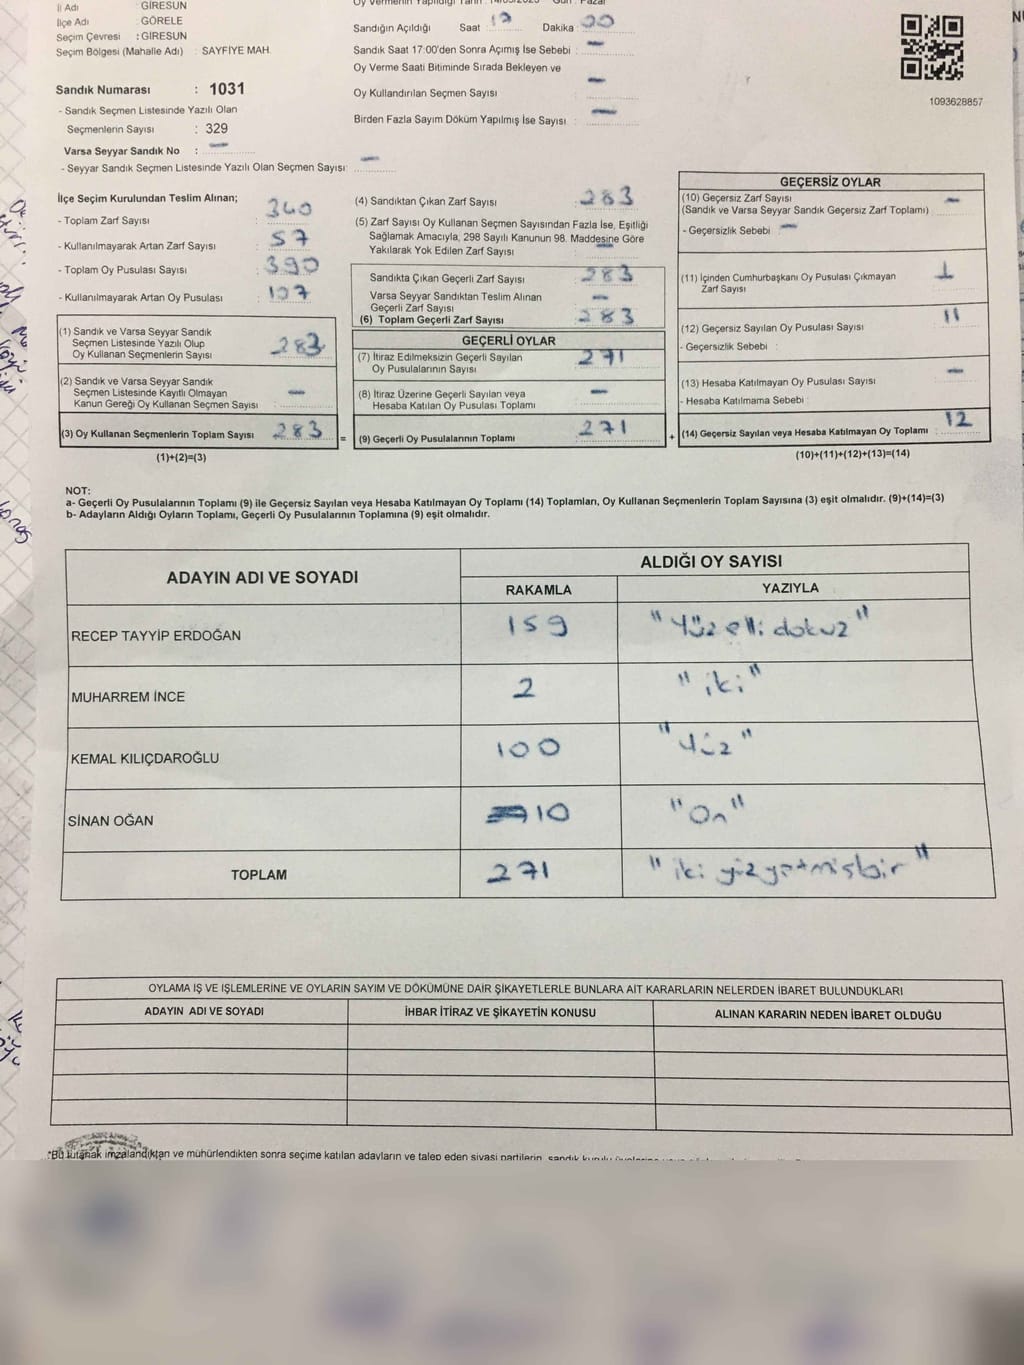 İl Adı : GİRESUN
İlçe Adı : GÖRELE
Seçim Çevresi : GİRESUN
Seçim Bölgesi (Mahalle Adı) : SAYFİYE MAH.
Sandık Numarası : 1031
- Sandık Seçmen Listesinde Yazılı Olan
Seçmenlerin Sayısı : 329
Varsa Seyyar Sandık No : —
- Seyyar Sandık Seçmen Listesinde Yazılı Olan Seçmen Sayısı: —
Oy Vermenin Yapıldığı Tarih : 14/05/2023 Gün : Pazar
Sandığın Açıldığı Saat 17 Dakika 00
Sandık Saat 17:00'den Sonra Açımış İse Sebebi : —
Oy Verme Saati Bitiminde Sırada Bekleyen ve
Oy Kullandırılan Seçmen Sayısı —
Birden Fazla Sayım Döküm Yapılmış İse Sayısı : —
1093628857
İlçe Seçim Kurulundan Teslim Alınan;
- Toplam Zarf Sayısı : 340
- Kullanılmayarak Artan Zarf Sayısı : 57
- Toplam Oy Pusulası Sayısı : 390
- Kullanılmayarak Artan Oy Pusulası : 107
(1) Sandık ve Varsa Seyyar Sandık
Seçmen Listesinde Yazılı Olup
Oy Kullanan Seçmenlerin Sayısı : 283
(2) Sandık ve Varsa Seyyar Sandık
Seçmen Listesinde Kayıtlı Olmayan
Kanun Gereği Oy Kullanan Seçmen Sayısı : —
(3) Oy Kullanan Seçmenlerin Toplam Sayısı : 283
(1)+(2)=(3)
(4) Sandıktan Çıkan Zarf Sayısı : 283
(5) Zarf Sayısı Oy Kullanan Seçmen Sayısından Fazla İse, Eşitliği
Sağlamak Amacıyla, 298 Sayılı Kanunun 98. Maddesine Göre
Yakılarak Yok Edilen Zarf Sayısı : —
Sandıkta Çıkan Geçerli Zarf Sayısı : 283
Varsa Seyyar Sandıktan Teslim Alınan
Geçerli Zarf Sayısı : —
(6) Toplam Geçerli Zarf Sayısı : 283
GEÇERLİ OYLAR
(7) İtiraz Edilmeksizin Geçerli Sayılan
Oy Pusulalarının Sayısı : 271
(8) İtiraz Üzerine Geçerli Sayılan veya
Hesaba Katılan Oy Pusulası Toplamı : —
= (9) Geçerli Oy Pusulalarının Toplamı : 271
GEÇERSİZ OYLAR
(10) Geçersiz Zarf Sayısı
(Sandık ve Varsa Seyyar Sandık Geçersiz Zarf Toplamı) : —
- Geçersizlik Sebebi : —
(11) İçinden Cumhurbaşkanı Oy Pusulası Çıkmayan
Zarf Sayısı : 1
(12) Geçersiz Sayılan Oy Pusulası Sayısı : 11
- Geçersizlik Sebebi :
(13) Hesaba Katılmayan Oy Pusulası Sayısı : —
- Hesaba Katılmama Sebebi :
+ (14) Geçersiz Sayılan veya Hesaba Katılmayan Oy Toplamı : 12
(10)+(11)+(12)+(13)=(14)
NOT:
a- Geçerli Oy Pusulalarının Toplamı (9) ile Geçersiz Sayılan veya Hesaba Katılmayan Oy Toplamı (14) Toplamları, Oy Kullanan Seçmenlerin Toplam Sayısına (3) eşit olmalıdır. (9)+(14)=(3)
b- Adayların Aldığı Oyların Toplamı, Geçerli Oy Pusulalarının Toplamına (9) eşit olmalıdır.
ADAYIN ADI VE SOYADI
ALDIĞI OY SAYISI
RAKAMLA YAZIYLA
RECEP TAYYİP ERDOĞAN 159 "Yüz elli dokuz"
MUHARREM İNCE 2 "iki"
KEMAL KILIÇDAROĞLU 100 "Yüz"
SİNAN OĞAN 10 "On"
TOPLAM 271 "iki yüz yetmişbir"
OYLAMA İŞ VE İŞLEMLERİNE VE OYLARIN SAYIM VE DÖKÜMÜNE DAİR ŞİKAYETLERLE BUNLARA AİT KARARLARIN NELERDEN İBARET BULUNDUKLARI
ADAYIN ADI VE SOYADI İHBAR İTİRAZ VE ŞİKAYETİN KONUSU ALINAN KARARIN NEDEN İBARET OLDUĞU
*Bu tutanak imzalandıktan ve mühürlendikten sonra seçime katılan adayların ve talep eden siyasi partilerin, sandık kurulu